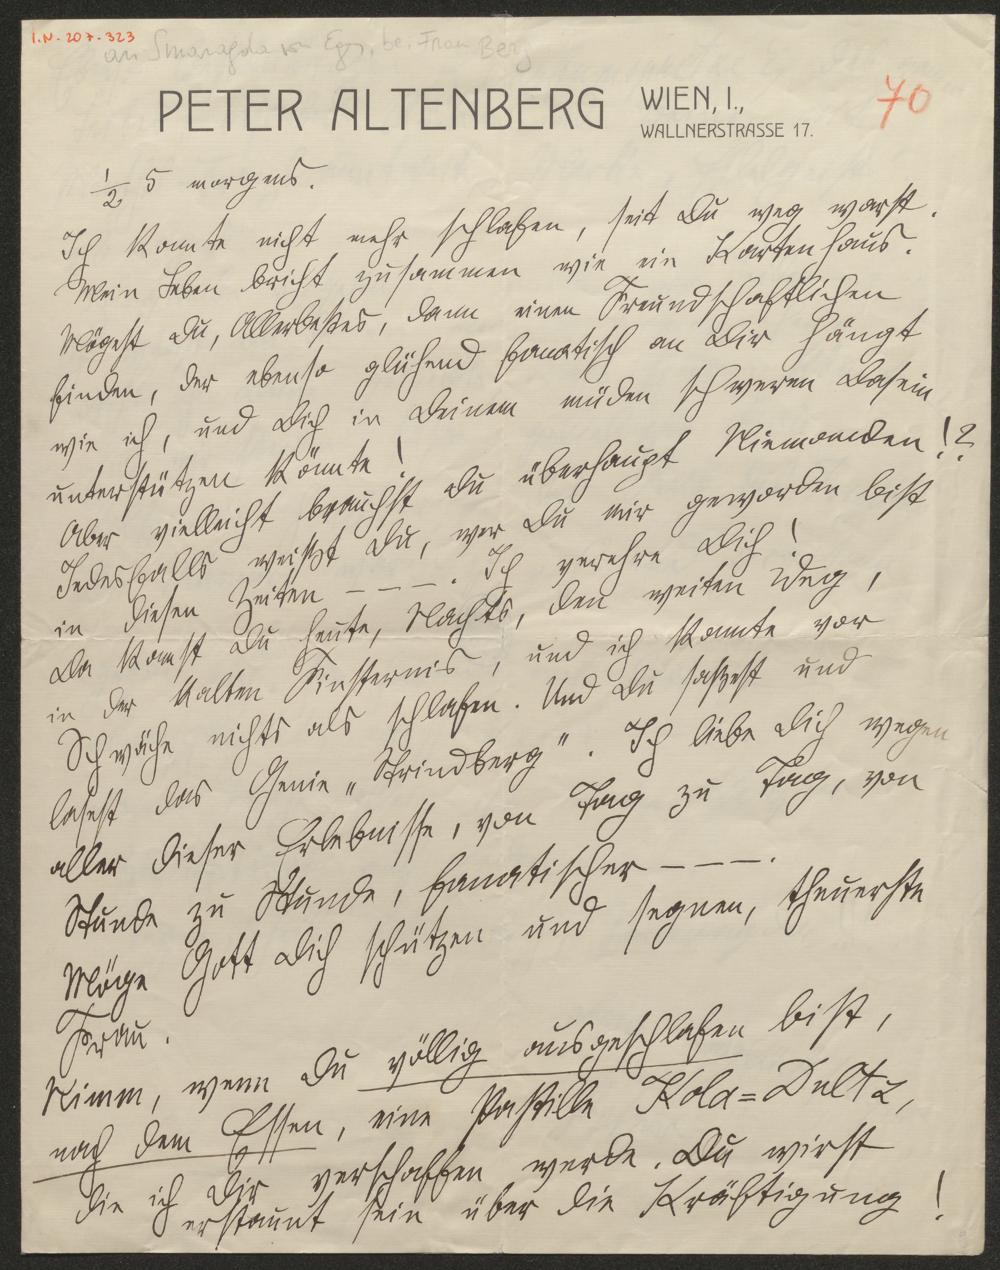 I.N. 207.323
an Smaragda von Eger, bei Frau Berg
PETER ALTENBERG WIEN, I.,
WALLNERSTRASSE 17.
70
1/2 5 morgens.
Ich konnte nicht mehr schlafen, seit Du weg warst.
Mein Leben bricht zusammen wie ein Kartenhaus.
Mögest Du, Allerbestes, dann einen Freundschaftlichen
finden, der ebenso glühend fanatisch an Dir hängt
wie ich, und Dich in Deinem müden schweren Dasein
unterstützen könnte!
Aber vielleicht brauchst Du überhaupt Niemanden!?
Jedesfalls weißt Du, wer Du mir geworden bist
in diesen Zeiten – – –. Ich verehre Dich!
Da kamst Du heute, Nachts, den weiten Weg,
in der kalten Finsternis, und ich konnte vor
Schwäche nichts als schlafen. Und Du saßest und
lasest das Genie „Strindberg". Ich liebe Dich wegen
aller dieser Erlebnisse, von Tag zu Tag, von
Stunde zu Stunde, fanatischer – – –.
Möge Gott Dich schützen und segnen, theuerste
Frau.
Nimm, wenn Du völlig ausgeschlafen bist,
nach dem Essen, eine Pastille Kola=Dultz,
die ich Dir verschaffen werde. Du wirst
erstaunt sein über die Kräftigung!